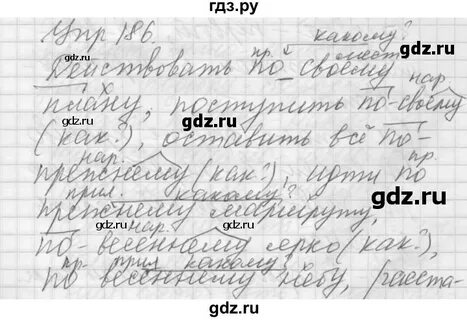 гдз.ру
Упр 186.
какому?
пр. мест.
Действовать по своему
нар.
плану, поступить по-своему
(как?), оставить всё по-
нар. пр.
прежнему (как?), идти по
прил. какому?
прежнему маршруту,
нар.
по-весеннему ярко (как?),
пр. прил. какому?
по весеннему небу,
gdz.ru
gdz.ru
gdz.ru
gdz.ru
gdz.ru
гдз.ру